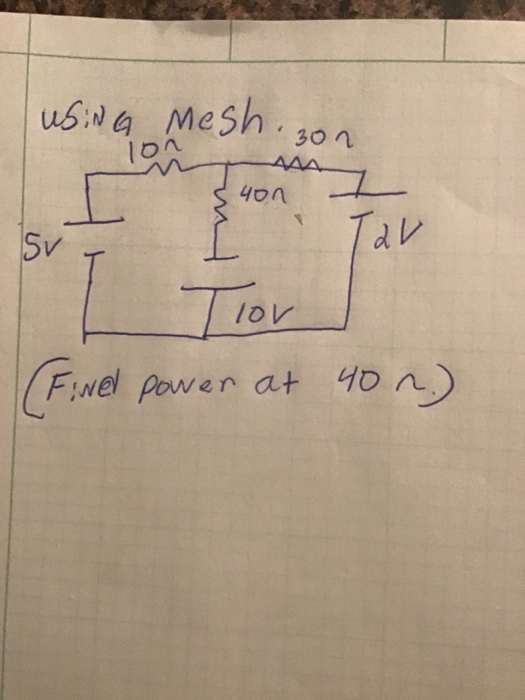 USiNG Mesh.
10Ω 30Ω
40Ω
5V 2V
10V
(Find power at 40 Ω.)